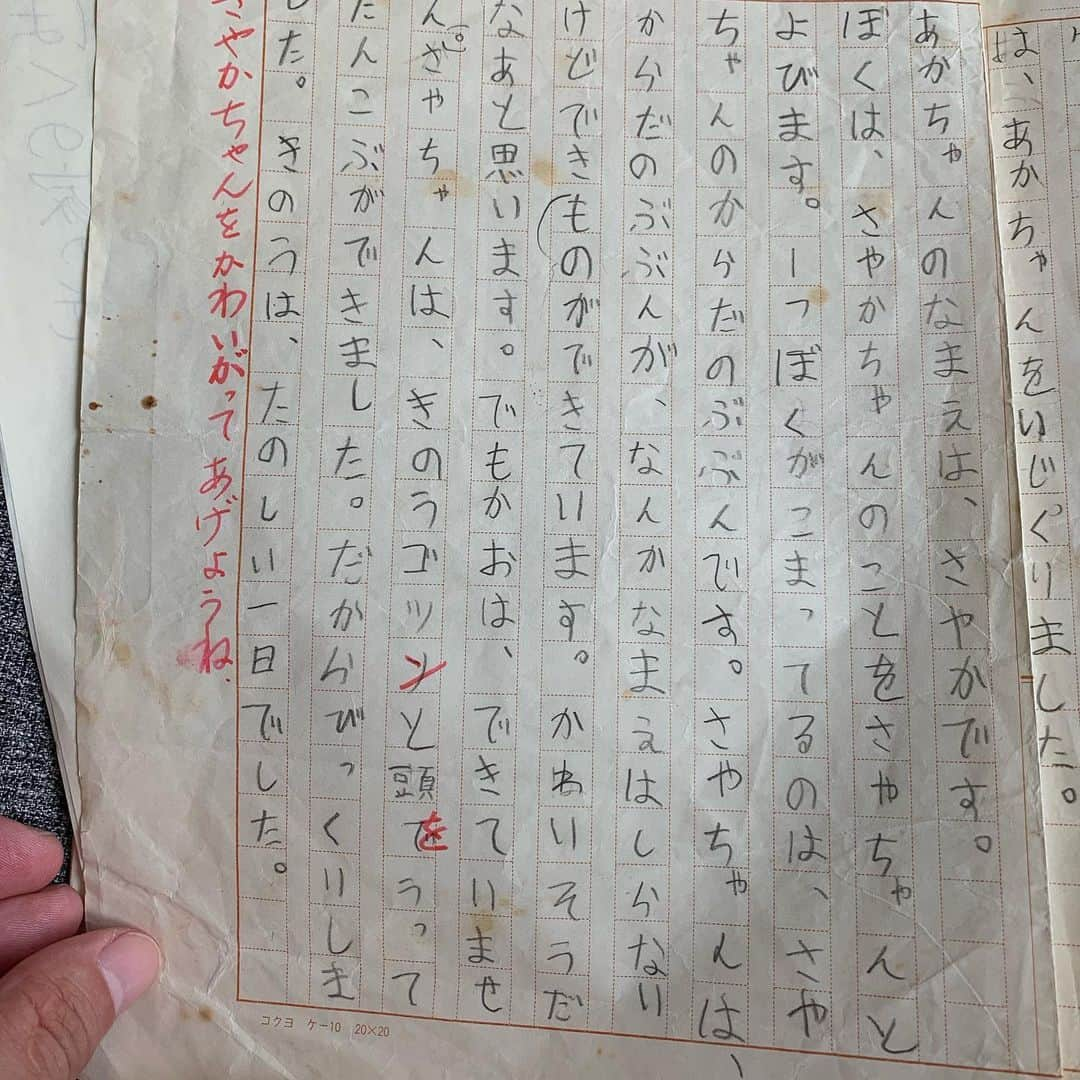 は、あかちゃんをいじくりました。
あかちゃんのなまえは、さやかです。
ぼくは、さやかちゃんのことをさやちゃんと
よびます。一つぼくがこまってるのは、さや
ちゃんのからだのぶぶんです。さやちゃんは、
からだのぶぶんが、なんかなまえはしらない
けどできものができています。かわいそうだ
なあと思います。でもかおは、できていませ
ん。さやちゃんは、きのうゴツンと頭をうって
たんこぶができました。だからびっくりしま
した。きのうは、たのしい一日でした。
さやかちゃんをかわいがってあげようね。
コクヨ ケー10 20×20